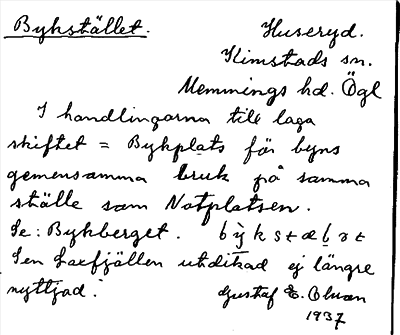 Bykstället. Huseryd.
Kimstads sn.
Memmings hd. Ögl
I handlingarna till laga
skiftet = Bykplats för byns
gemensamma bruk på samma
ställe som Notplatsen.
Se: Bykberget.
Sen utdikad ej längre
nyttjad.
Gustaf E. Olsson
1937